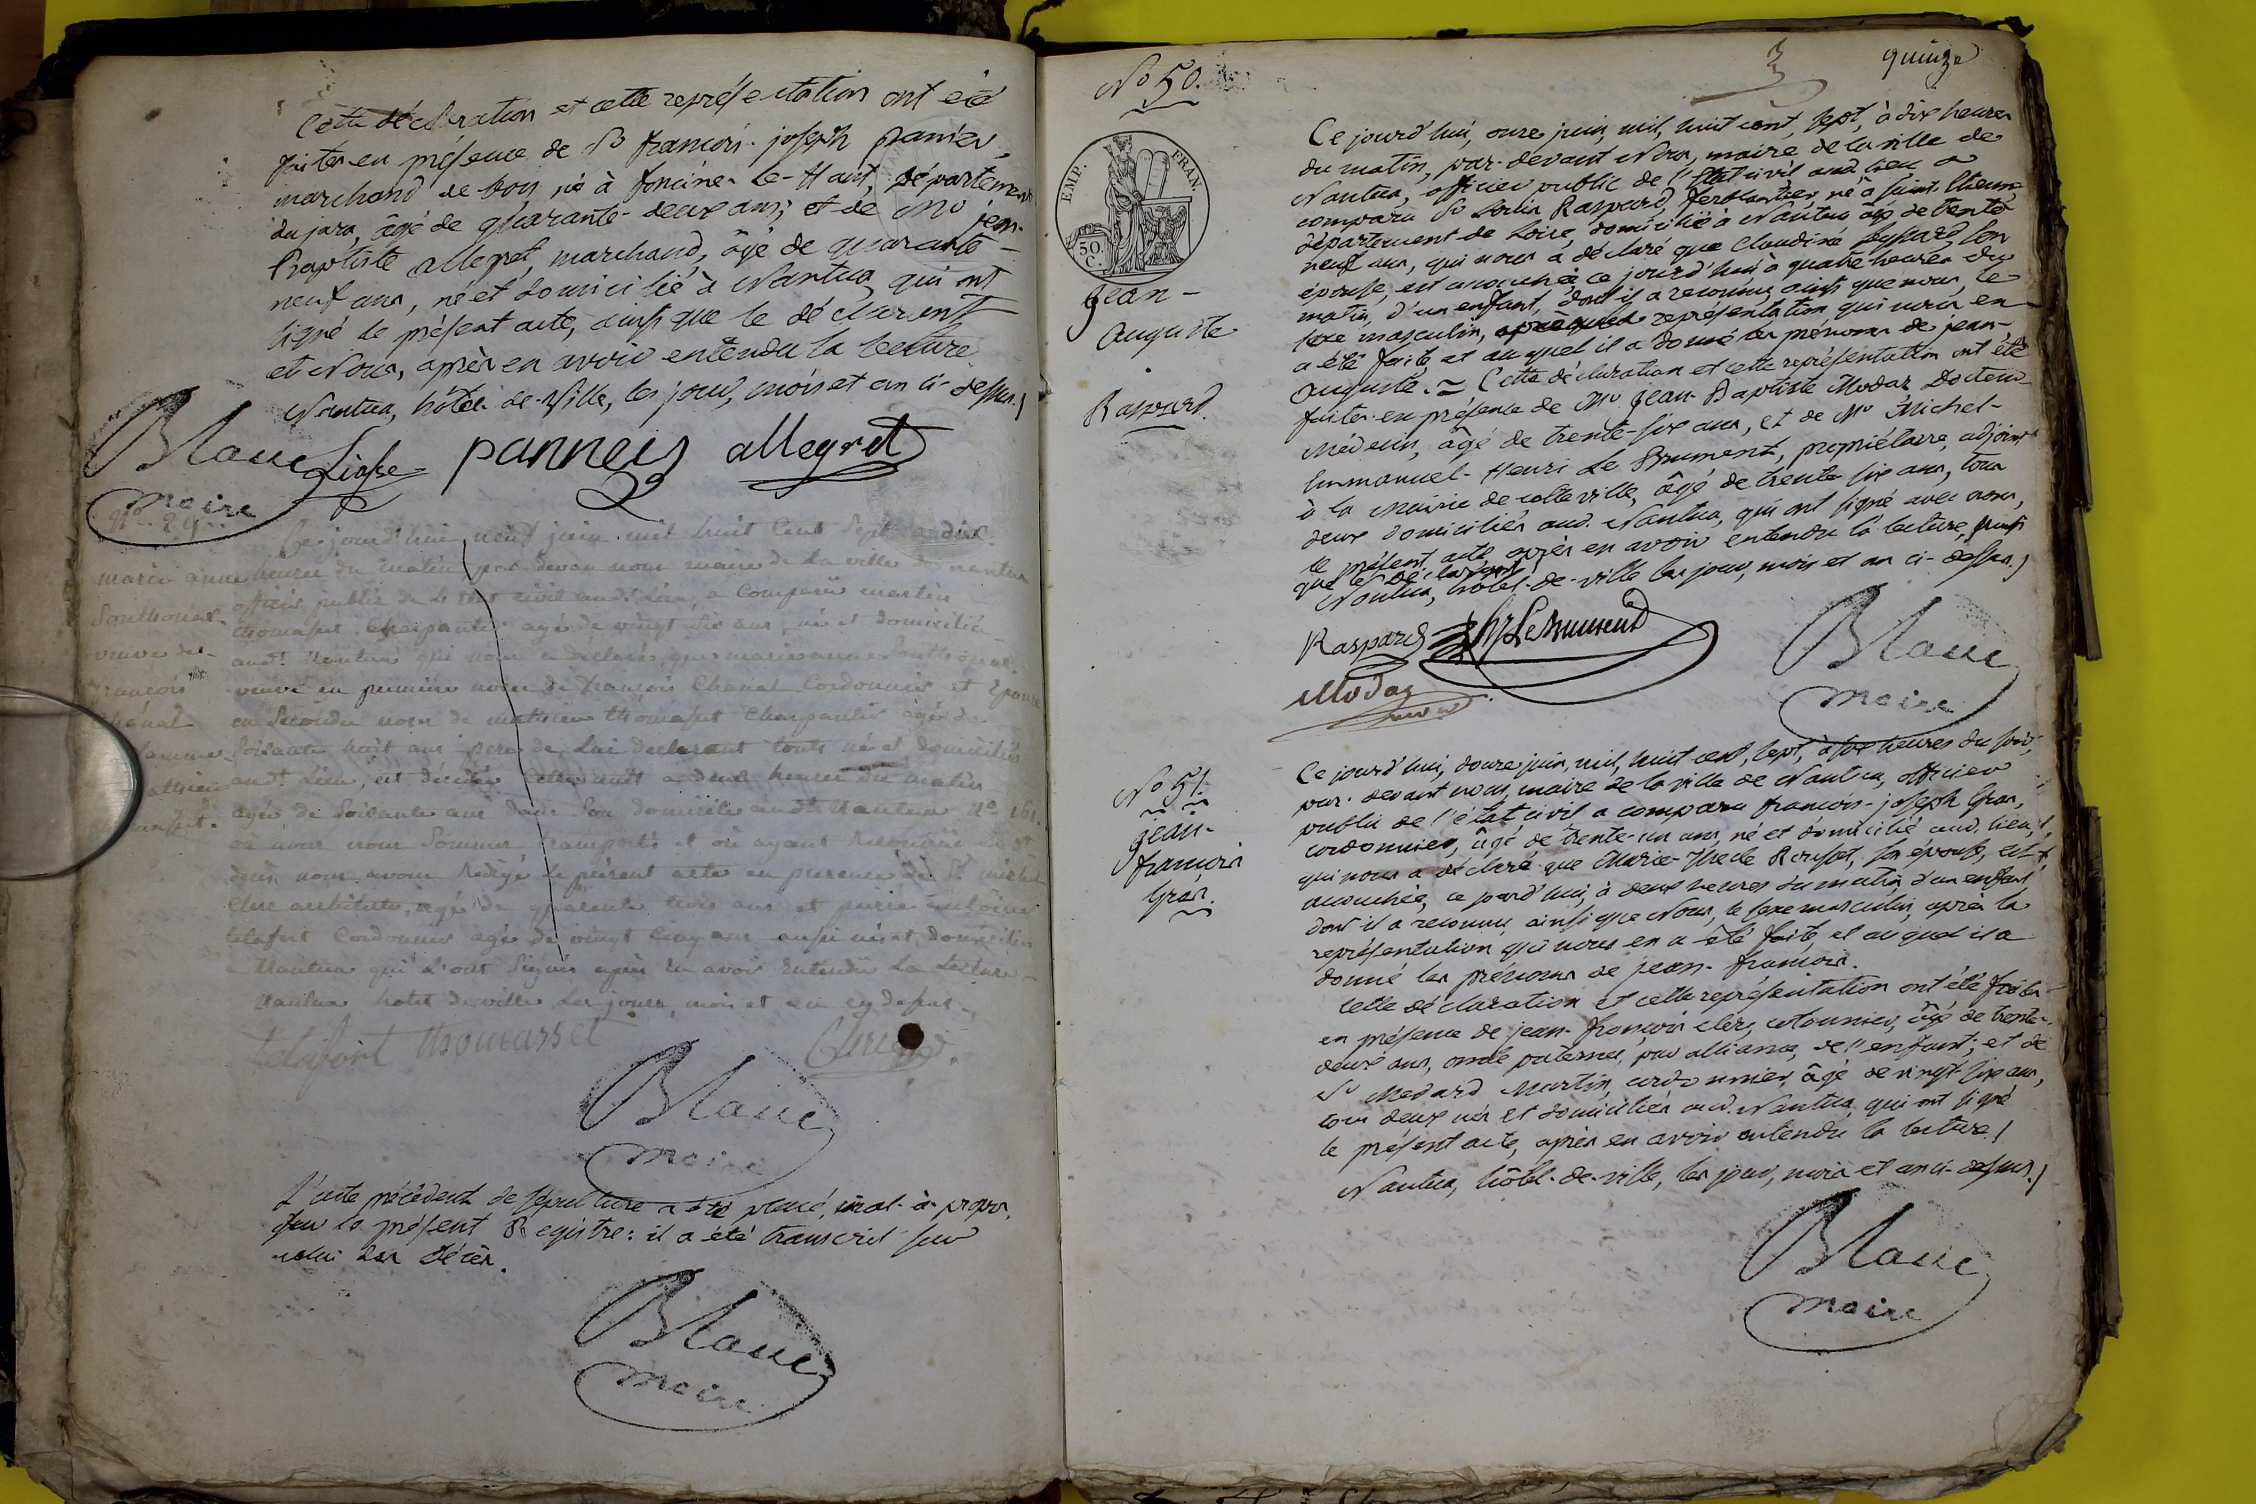 Cette déclaration et cette représentation ont été
faites en présence de Sr françois-joseph panier,
marchand de bois, né à foncine-le-Haut, département
du jura, âgé de quarante-deux ans; et de Mr jean-
Baptiste allegret, marchand, âgé de quarante-
neuf ans, né et domicilié à Nantua, qui ont
signé le présent acte, ainsi que le déclarant
et Nous, après en avoir entendu la lecture
Nantua, hôtel-de-Ville, les jour, mois et an ci-dessus.
Blanc panneis allegret
maire
Ce jourd'hui neuf juin mil huit Cent Sept a dix
marie anne heures du matin par devan nous maire de La ville de nantua
officier public de L'état civil audt Lieu, a Comparu martin
thomasset Charpantier agé de vingt six ans, né et domicilié
veuve de audt Nantua qui nous a declaré que marie anne
françois veuve en premiere noces de françois Chanal Cordonnier et Epouse
Chanal en Seconde noces de mathieu thomasset Charpantier agé de
femme Soisante huit ans pere de Lui declarant touts né et domiciliés
audt Lieu, est décédée cette nuit a deux heures du matin
agée de Soisante ans dans Son domicile audt Nantua No 161
ou nous nous Sommes transporté et où ayant Reconnu Le dt
décès nous avons Rédigé Le présent acte en presence de Sr michel
Clerc architecte, agé de quarante trois ans et
Cordonnier agé de vingt Cinq ans aussi né et domiciliés
a Nantua qui L'ont Signés après En avoir Entendu La Lecture
Nantua hotel de ville Les jours, mois et an cy dessus
thomasset
Blanc
maire
L'acte précédent de sépulture a été placé, mal-à-propos,
sur le présent Registre: il a été transcrit sur
celui des décès.
Blanc
maire
3 quinze
No 50.
EMP. FRAN.
50 C.
Jean-
auguste
Raspard.
Ce jourd'hui, onze juin, mil, huit cent, sept, à dix heures
du matin, par-devant Nous, maire de la ville de
Nantua, officier public de l'État civil aud. lieu a
comparu Sr Raspard, ferblantier, né à saint-Etienne
département de Loire, domicilié à Nantua âgé de trente-
neuf ans, qui nous a déclaré que Claudine son
épouse, est accouchée ce jourd'hui à quatre heures du
matin, d'un enfant, dont il a reconnu, ainsi que nous, le
sexe masculin, représentation qui nous en
a été faite, et auquel il a donné les prénoms de jean-
auguste. = Cette déclaration et cette représentation ont été
faites en présence de Mr Jean-Baptiste Modaz Docteur
Médecin, âgé de trente-six ans, et de Mr Michel-
Emmanuel-Henri Le Brument, propriétaire, adjoint
à la Mairie de cette ville, âgé de trente-six ans, tous
deux domiciliés aud. Nantua, qui ont signé avec nous,
le présent acte, après en avoir entendu la lecture, ainsi
que le déclarant
Nantua, hôtel-de-ville les jour, mois et an ci-dessus.
Raspard LeBrument
Modaz
Blanc
maire
No 51.
jean-
françois
Gras.
Ce jourd'hui, douze juin, mil, huit cent, sept, à six heures du soir,
par-devant nous, maire de la ville de Nantua, officier
public de l'état civil a comparu françois-joseph Gras,
cordonnier, âgé de trente-un ans, né et domicilié aud. lieu,
qui nous a déclaré que Marie-Thecle son épouse, est
accouchée, ce jourd'hui, à deux heures du matin, d'un enfant
dont il a reconnu, ainsi que Nous, le sexe masculin, après la
représentation qui nous en a été faite, et auquel il a
donné les prénoms de jean-françois.
Cette déclaration et cette représentation ont été faites
en présence de jean-françois clerc, âgé de trente-
deux ans, oncle paternel, par alliance, de l'enfant; et de
Sr Medard Martin, cordonnier, âgé de vingt-six ans,
tous deux nés et domiciliés aud. Nantua, qui ont signé
le présent acte, après en avoir entendu la lecture.
Nantua, hôtel-de-ville, les jour, mois et an ci-dessus.
Blanc
maire